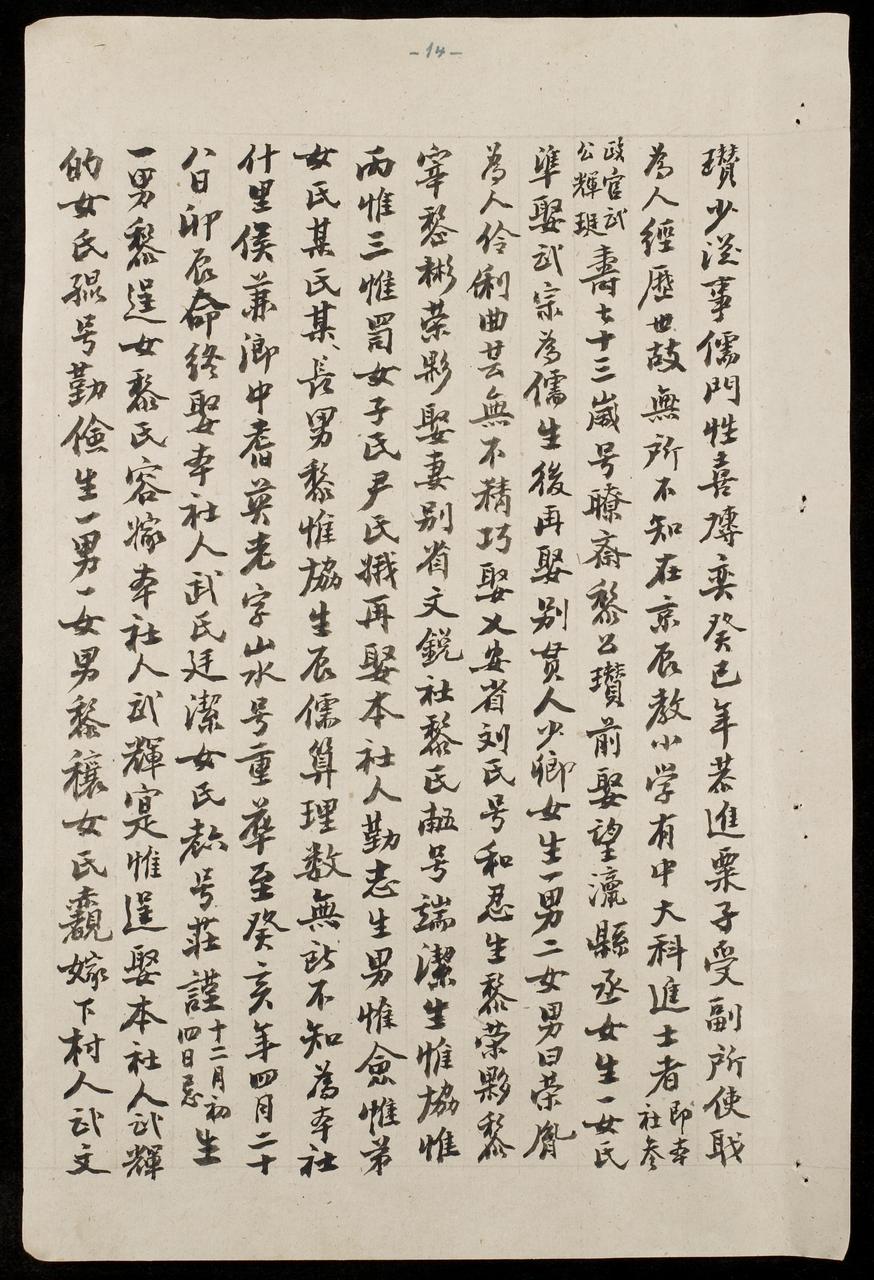 -14-
瓚少從事儒門性喜博奕癸巳年恭進粟子受副所使職
為人經歷世故無所不知在京辰教小学有中大科進士者即本社參
政官武公輝珽壽七十三歲号瞭齋黎公瓚前娶望瀛縣丞女生一女氏
準娶武宗為儒生後再娶別貫人少卿女生一男二女男曰荣胤
為人伶俐曲芸無不精巧娶乂安省刘氏号和忍生黎荣夥黎
宰黎彬荣夥娶妻別省文銳社黎氏號端潔生惟協惟
両惟三惟罰女子氏尹氏娥再娶本社人勤志生男惟僉惟弟
女氏某氏某長男黎惟協生辰儒算理数無所不知為本社
什里侯兼鄉中耆英老字山水号重華至癸亥年四月二十
八日卯辰命終娶本社人武氏廷潔女氏号莊謹十二月初四日忌生
一男黎逞女黎氏容嫁本社人武輝寔惟逞娶本社人武輝
的女氏号勤儉生一男一女男黎穰女氏覊嫁下村人武文